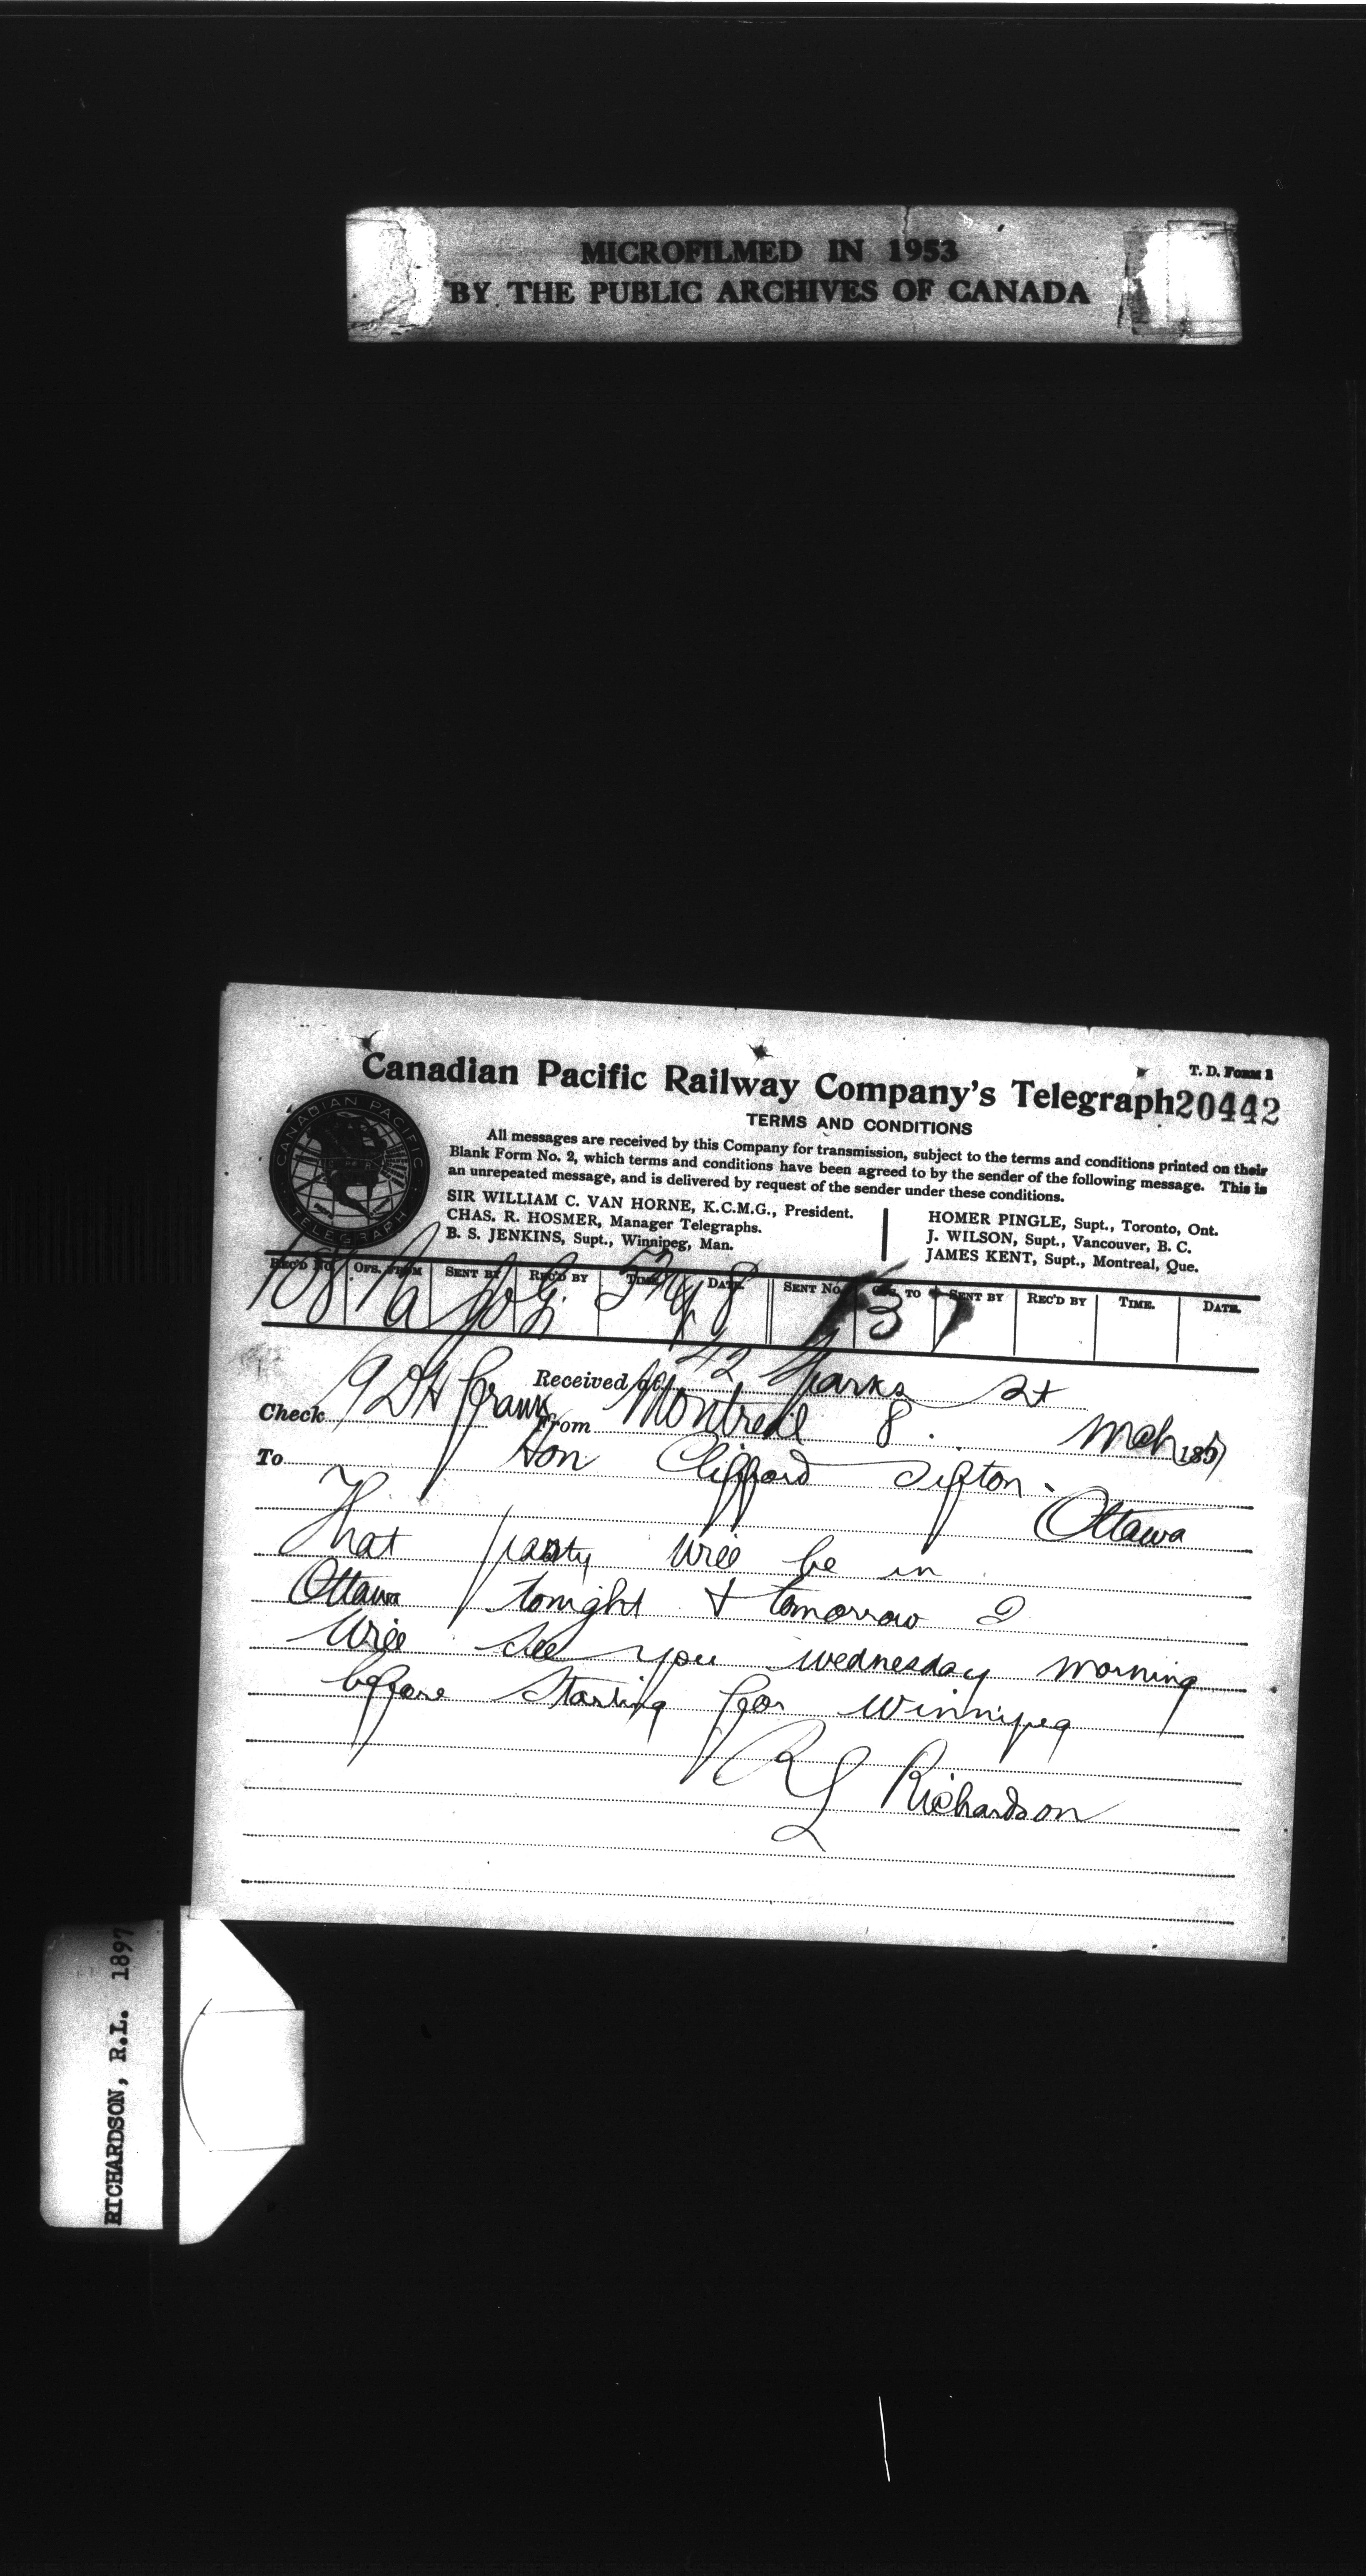 MICROFILMED IN 1953
BY THE PUBLIC ARCHIVES OF CANADA
T. D. Form 2
Canadian Pacific Railway Company's Telegraph 20442
TERMS AND CONDITIONS
All messages are received by this Company for transmission, subject to the terms and conditions printed on their
Blank Form No. 2, which terms and conditions have been agreed to by the sender of the following message. This is
an unrepeated message, and is delivered by request of the sender under these conditions.
SIR WILLIAM C. VAN HORNE, K.C.M.G., President.
CHAS. R. HOSMER, Manager Telegraphs.
B. S. JENKINS, Supt., Winnipeg, Man.
HOMER PINGLE, Supt., Toronto, Ont.
J. WILSON, Supt., Vancouver, B. C.
JAMES KENT, Supt., Montreal, Que.
CANADIAN PACIFIC TELEGRAPH
REC'D NO. OFS. FROM SENT BY REC'D BY TIME. DATE. SENT NO. OFS. TO SENT BY REC'D BY TIME. DATE.
108 8
Received at 42 Sparks St
Check 19 DH Frank From Montreal 8. Mch 1897
To Hon Clifford Sifton
Ottawa
That party will be in
Ottawa tonight & tomorrow I
Will see you wednesday morning
before Starting for Winnipeg
RL Richardson
RICHARDSON, R.L. 1897